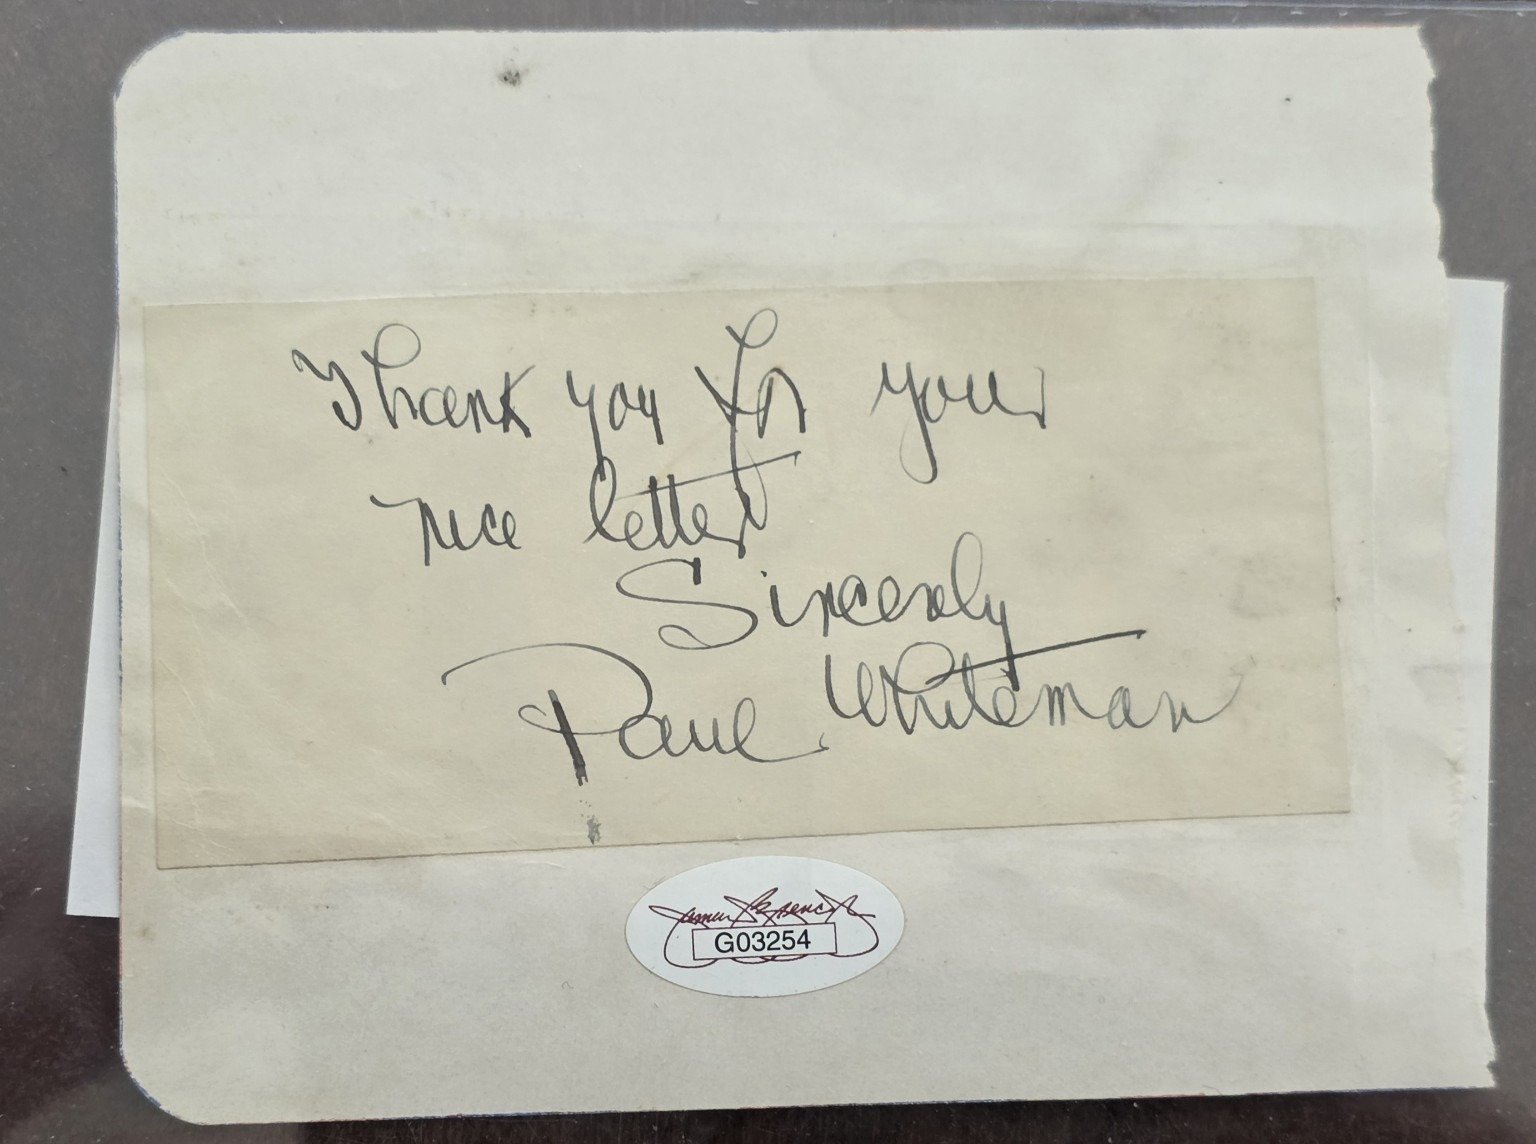 Thank you for your
nice letter
Sincerely
Paul Whiteman
James Spence
G03254